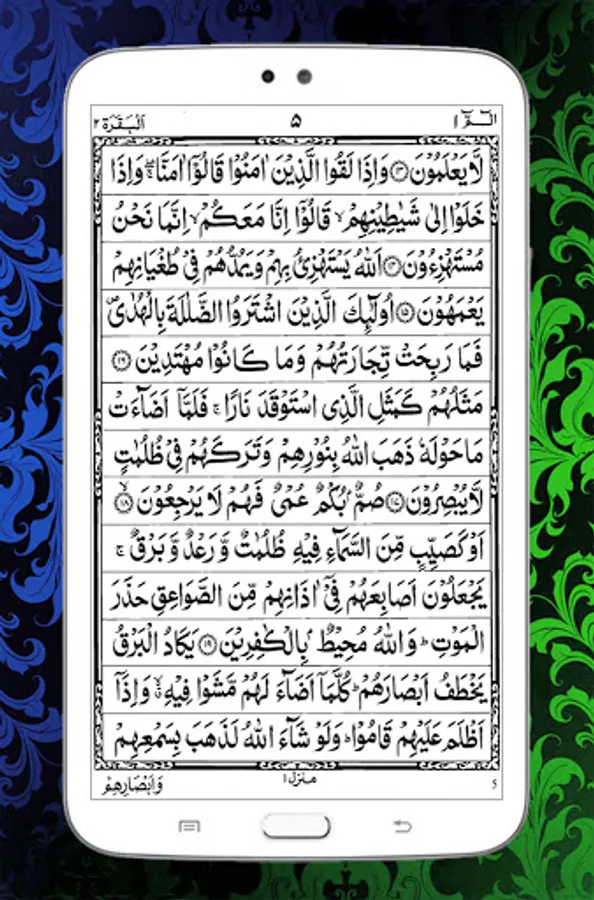 الٓمّٓ ۱ ۵ اَلْبَقَرَة ۲
لَّا يَعْلَمُوْنَ ﴿۱۳﴾ وَاِذَا لَقُوا الَّذِيْنَ اٰمَنُوْا قَالُوْٓا اٰمَنَّا ۖۚ وَاِذَا
خَلَوْا اِلٰى شَيٰطِيْنِهِمْ ۙ قَالُوْٓا اِنَّا مَعَكُمْ ۙ اِنَّمَا نَحْنُ
مُسْتَهْزِءُوْنَ ﴿۱۴﴾ اَللّٰهُ يَسْتَهْزِئُ بِهِمْ وَيَمُدُّهُمْ فِيْ طُغْيَانِهِمْ
يَعْمَهُوْنَ ﴿۱۵﴾ اُولٰٓئِكَ الَّذِيْنَ اشْتَرَوُا الضَّلٰلَةَ بِالْهُدٰى ۠
فَمَا رَبِحَتْ تِّجَارَتُهُمْ وَمَا كَانُوْا مُهْتَدِيْنَ ﴿۱۶﴾
مَثَلُهُمْ كَمَثَلِ الَّذِى اسْتَوْقَدَ نَارًا ۚ فَلَمَّآ اَضَآءَتْ
مَا حَوْلَهٗ ذَهَبَ اللّٰهُ بِنُوْرِهِمْ وَتَرَكَهُمْ فِيْ ظُلُمٰتٍ
لَّا يُبْصِرُوْنَ ﴿۱۷﴾ صُمٌّۢ بُكْمٌ عُمْيٌ فَهُمْ لَا يَرْجِعُوْنَ ﴿۱۸﴾ ۙ
اَوْ كَصَيِّبٍ مِّنَ السَّمَآءِ فِيْهِ ظُلُمٰتٌ وَّرَعْدٌ وَّبَرْقٌ ۚ
يَجْعَلُوْنَ اَصَابِعَهُمْ فِيْٓ اٰذَانِهِمْ مِّنَ الصَّوَاعِقِ حَذَرَ
الْمَوْتِ ؕ وَاللّٰهُ مُحِيْطٌۢ بِالْكٰفِرِيْنَ ﴿۱۹﴾ يَكَادُ الْبَرْقُ
يَخْطَفُ اَبْصَارَهُمْ ؕ كُلَّمَآ اَضَآءَ لَهُمْ مَّشَوْا فِيْهِ ۙ وَاِذَآ
اَظْلَمَ عَلَيْهِمْ قَامُوْا ؕ وَلَوْ شَآءَ اللّٰهُ لَذَهَبَ بِسَمْعِهِمْ
5 منزل ۱ وَاَبْصَارِهِمْ